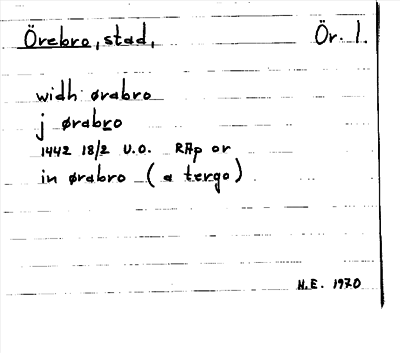 Örebro, stad, Ör. l.
widh ørabro
j ørabro
1442 18/2 U.O. RAp or
in ørabro (a tergo)
H.E. 1970